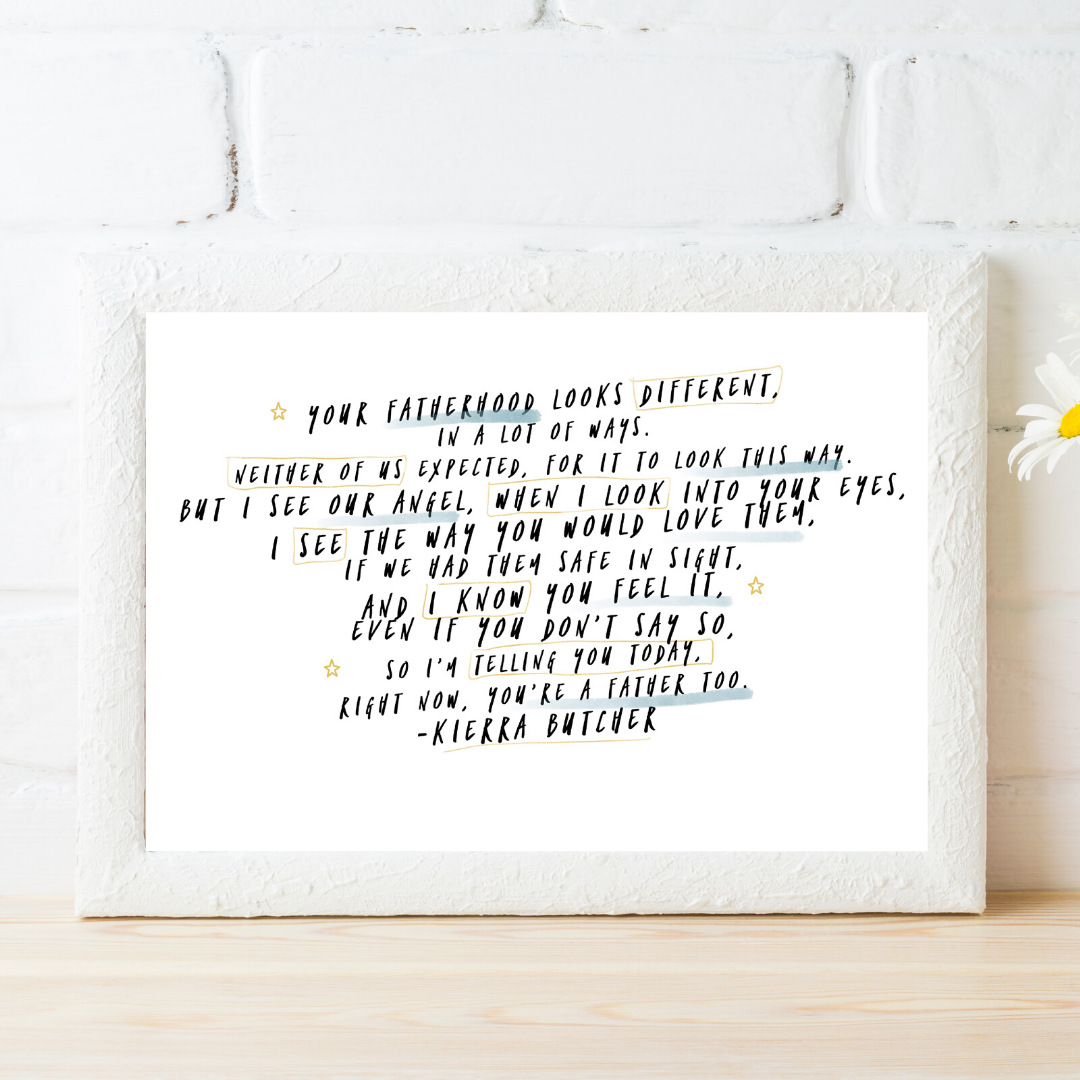 YOUR FATHERHOOD LOOKS DIFFERENT,
IN A LOT OF WAYS.
NEITHER OF US EXPECTED, FOR IT TO LOOK THIS WAY.
BUT I SEE OUR ANGEL, WHEN I LOOK INTO YOUR EYES,
I SEE THE WAY YOU WOULD LOVE THEM,
IF WE HAD THEM SAFE IN SIGHT,
AND I KNOW YOU FEEL IT,
EVEN IF YOU DON'T SAY SO,
SO I'M TELLING YOU TODAY,
RIGHT NOW, YOU'RE A FATHER TOO.
-KIERRA BUTCHER